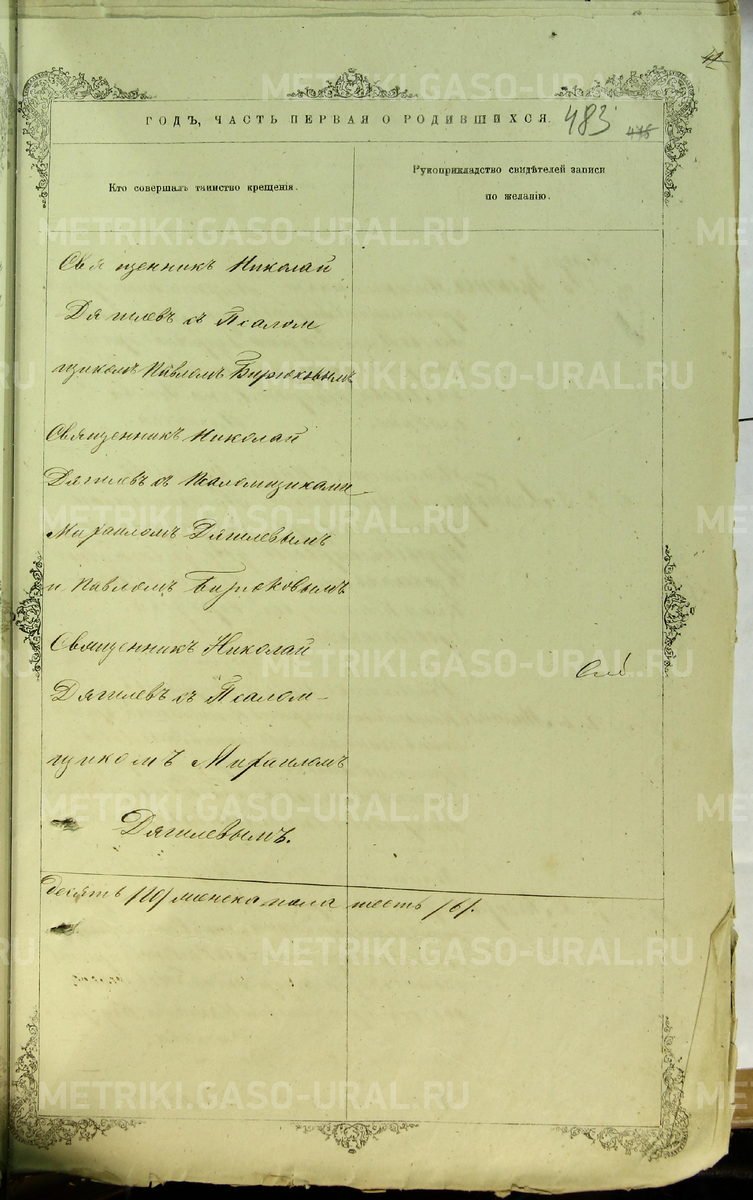 ГОДЪ, ЧАСТЬ ПЕРВАЯ О РОДИВШИХСЯ.
483
Кто совершалъ таинство крещенія.
Рукоприкладство свидѣтелей записи
по желанію.
Священникъ Николай
Дягилевъ съ Псалом
щикомъ Павломъ Бирюковымъ
Священникъ Николай
Дягилевъ съ Псаломщиками
Михаиломъ Дягилевымъ
и Павломъ Бирюковымъ
Священникъ Николай
Дягилевъ съ Псалом-
щикомъ Михаиломъ
Дягилевымъ.
десять /10/ женска пола шесть /6/.
METRIKI.GASO-URAL.RU